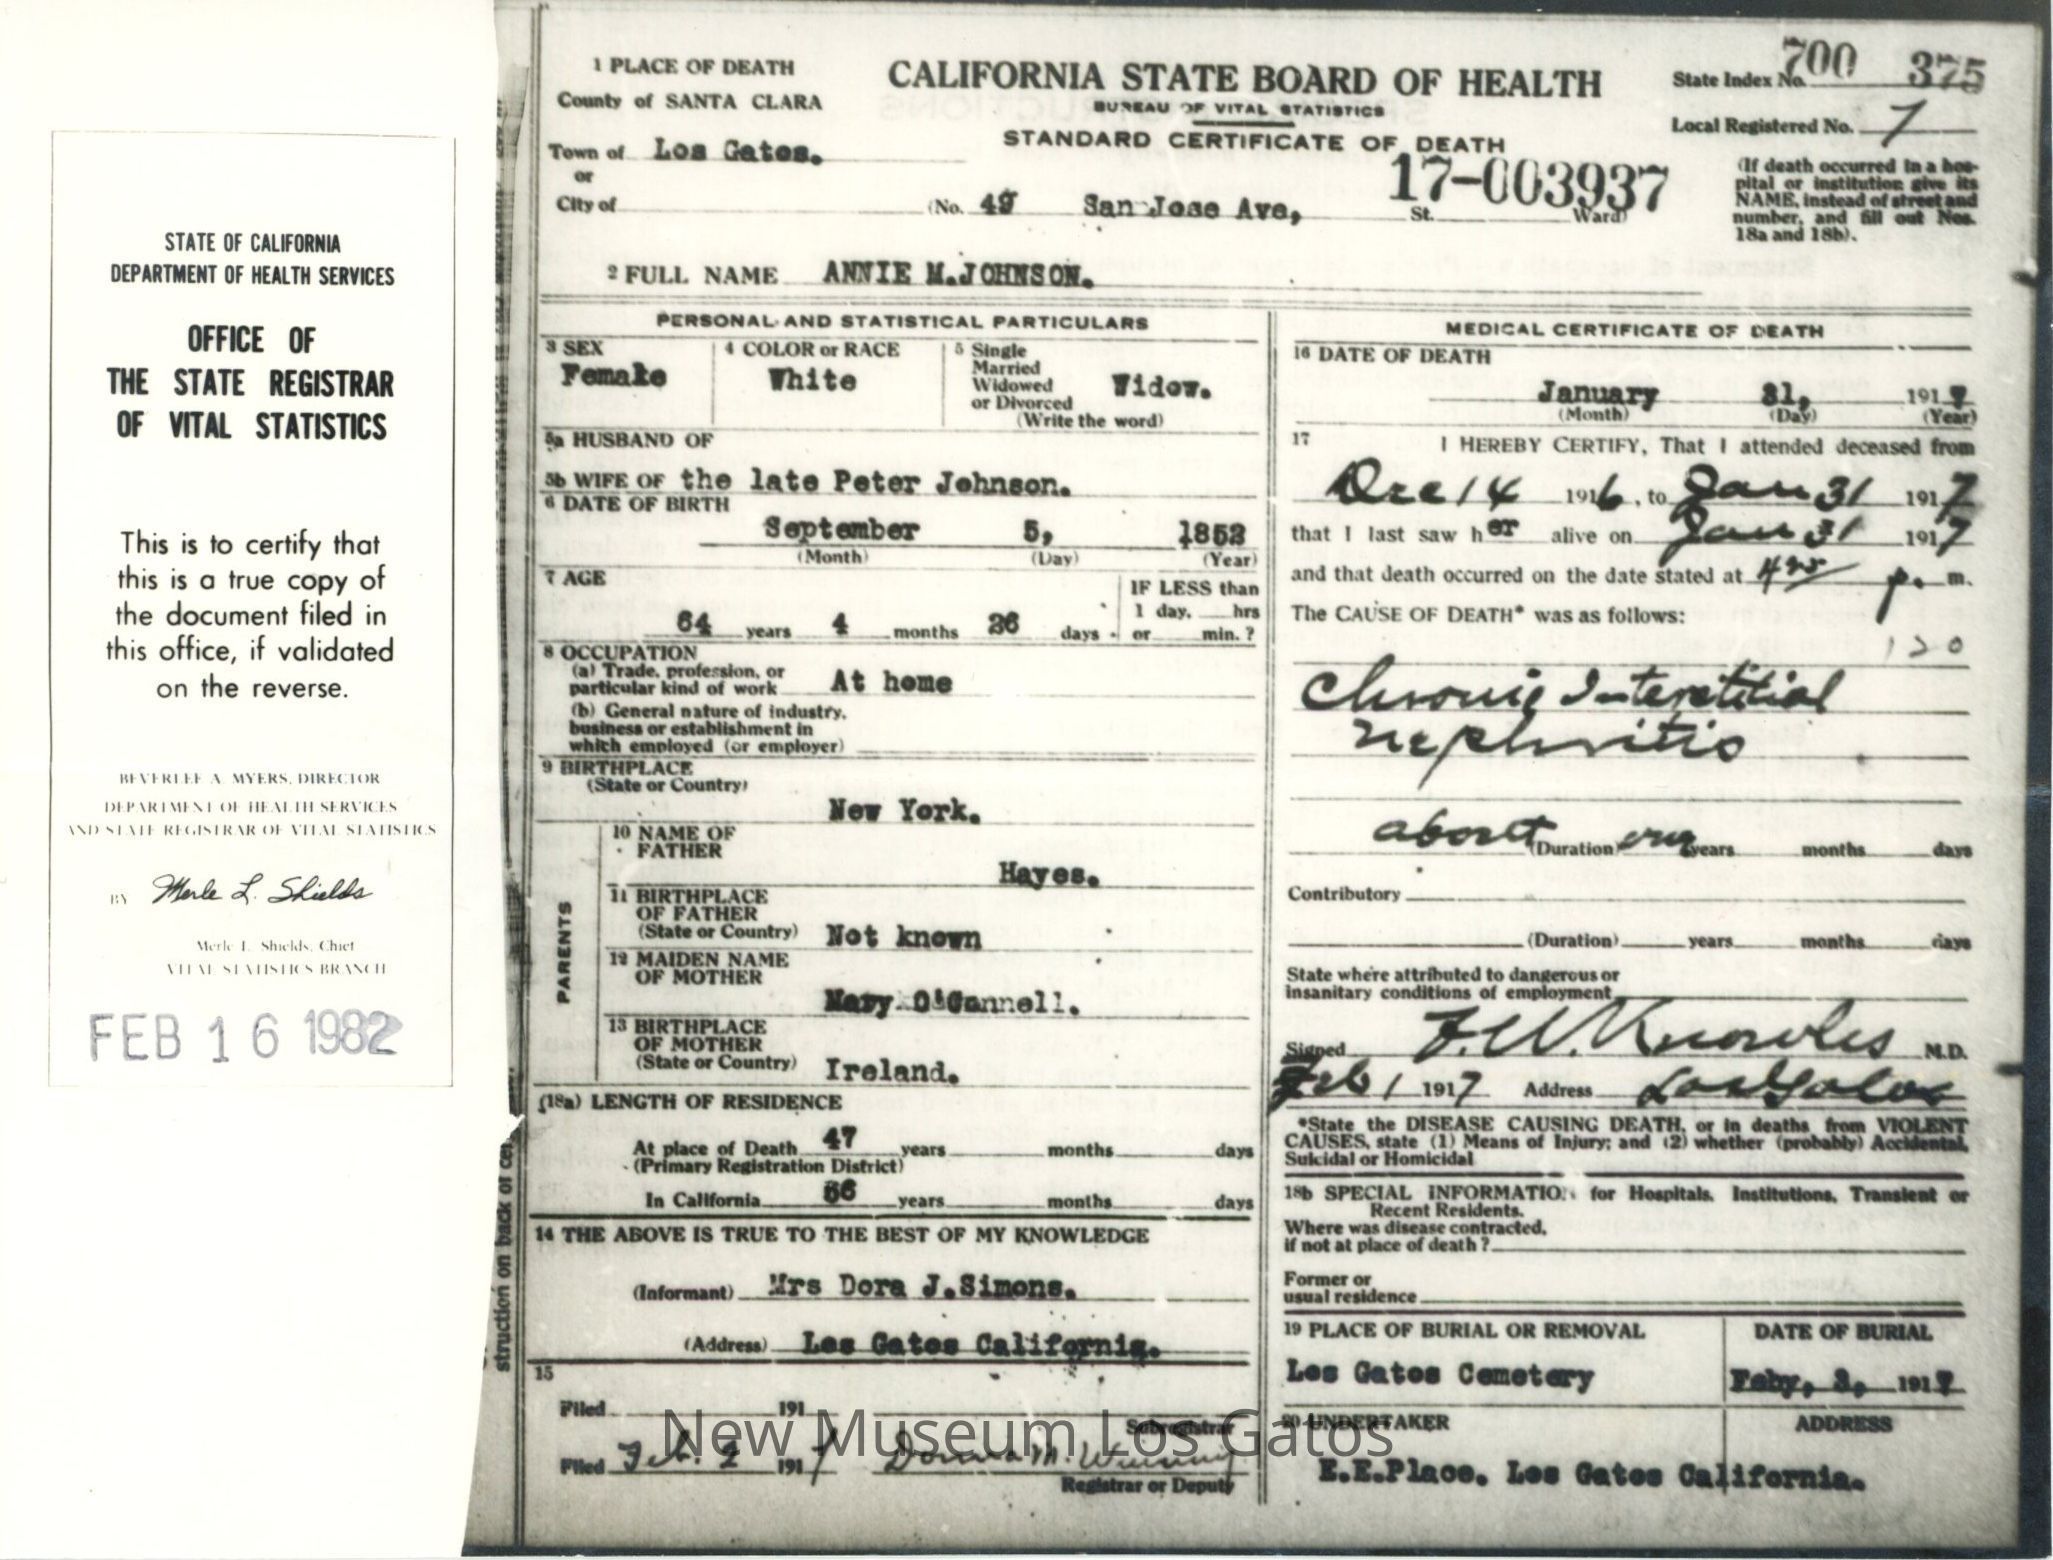 STATE OF CALIFORNIA
DEPARTMENT OF HEALTH SERVICES
OFFICE OF
THE STATE REGISTRAR
OF VITAL STATISTICS
This is to certify that
this is a true copy of
the document filed in
this office, if validated
on the reverse.
BEVERLEE A. MYERS, DIRECTOR
DEPARTMENT OF HEALTH SERVICES
AND STATE REGISTRAR OF VITAL STATISTICS
BY Merle L. Shields
Merle L. Shields, Chief
VITAL STATISTICS BRANCH
FEB 16 1982
struction on back of cer
1 PLACE OF DEATH
County of SANTA CLARA
Town of Los Gatos.
or
City of
CALIFORNIA STATE BOARD OF HEALTH
BUREAU OF VITAL STATISTICS
STANDARD CERTIFICATE OF DEATH
17-003937
(No. 49 San Jose Ave, St. Ward)
State Index No. 700 375
Local Registered No. 7
(If death occurred in a hos-
pital or institution give its
NAME, instead of street and
number, and fill out Nos.
18a and 18b).
2 FULL NAME ANNIE M.JOHNSON.
PERSONAL AND STATISTICAL PARTICULARS
3 SEX
Female
4 COLOR or RACE
White
5 Single
Married
Widowed
or Divorced
(Write the word)
Widow.
5a HUSBAND OF
5b WIFE OF the late Peter Johnson.
6 DATE OF BIRTH
September 5, 1852
(Month) (Day) (Year)
7 AGE
64 years 4 months 26 days
IF LESS than
1 day, hrs
or min. ?
8 OCCUPATION
(a) Trade, profession, or
particular kind of work At home
(b) General nature of industry,
business or establishment in
which employed (or employer)
9 BIRTHPLACE
(State or Country)
New York.
PARENTS
10 NAME OF
FATHER
Hayes.
11 BIRTHPLACE
OF FATHER
(State or Country) Not known
12 MAIDEN NAME
OF MOTHER
Mary O'Connell.
13 BIRTHPLACE
OF MOTHER
(State or Country) Ireland.
(18a) LENGTH OF RESIDENCE
At place of Death 47 years months days
(Primary Registration District)
In California 56 years months days
14 THE ABOVE IS TRUE TO THE BEST OF MY KNOWLEDGE
(Informant) Mrs Dora J.Simons.
(Address) Los Gatos California.
15
Filed 191
Subregistrar
Filed Feb. 2 1917
Registrar or Deputy
MEDICAL CERTIFICATE OF DEATH
16 DATE OF DEATH
January 31, 1917
(Month) (Day) (Year)
17 I HEREBY CERTIFY, That I attended deceased from
Dec 14 1916, to Jan 31 1917
that I last saw her alive on Jan 31 1917
and that death occurred on the date stated at 4 p. m.
The CAUSE OF DEATH* was as follows:
120
Chronic Interstitial
nephritis
about (Duration) one years months days
Contributory
(Duration) years months days
State where attributed to dangerous or
insanitary conditions of employment
Signed F.W. Knowles M.D.
Feb 1 1917 Address Los Gatos
*State the DISEASE CAUSING DEATH, or in deaths from VIOLENT
CAUSES, state (1) Means of Injury; and (2) whether (probably) Accidental,
Suicidal or Homicidal
18b SPECIAL INFORMATION for Hospitals, Institutions, Transient or
Recent Residents.
Where was disease contracted,
if not at place of death ?
Former or
usual residence
19 PLACE OF BURIAL OR REMOVAL
Los Gatos Cemetery
DATE OF BURIAL
Feby, 1917
20 UNDERTAKER
ADDRESS
E.E.Place. Los Gatos California.
New Museum Los Gatos